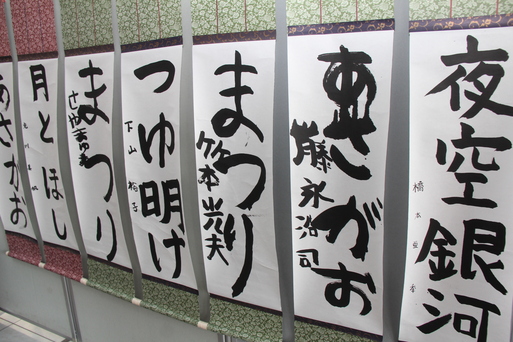 夜空銀河
橋本
あさがお
藤永浩司
まつり
竹本光夫
つゆ明け
下山
まつり
月とほし
あさがお